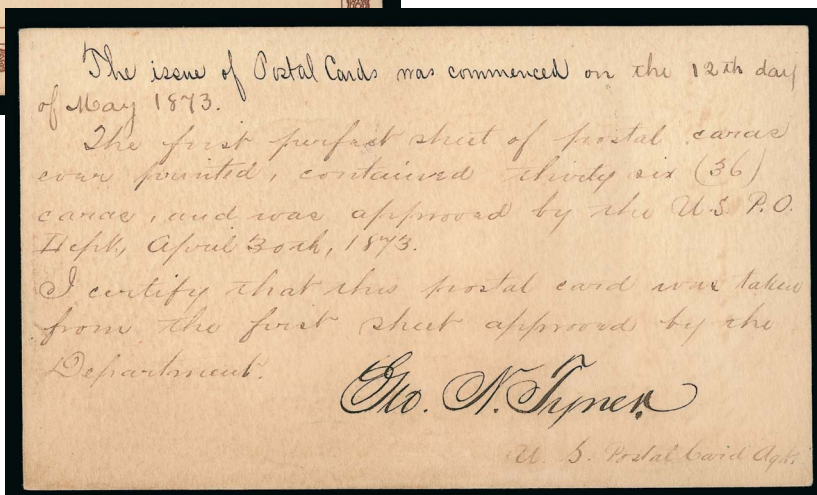 The issue of Postal Cards was commenced on the 12th day
of May 1873.
The first perfect sheet of postal cards
ever printed, contained thirty six (36)
cards, and was approved by the U.S. P.O.
Dept, April 30th, 1873.
I certify that this postal card was taken
from the first sheet approved by the
Department.
Geo. N. Tyner.
U. S. Postal Card Agt.